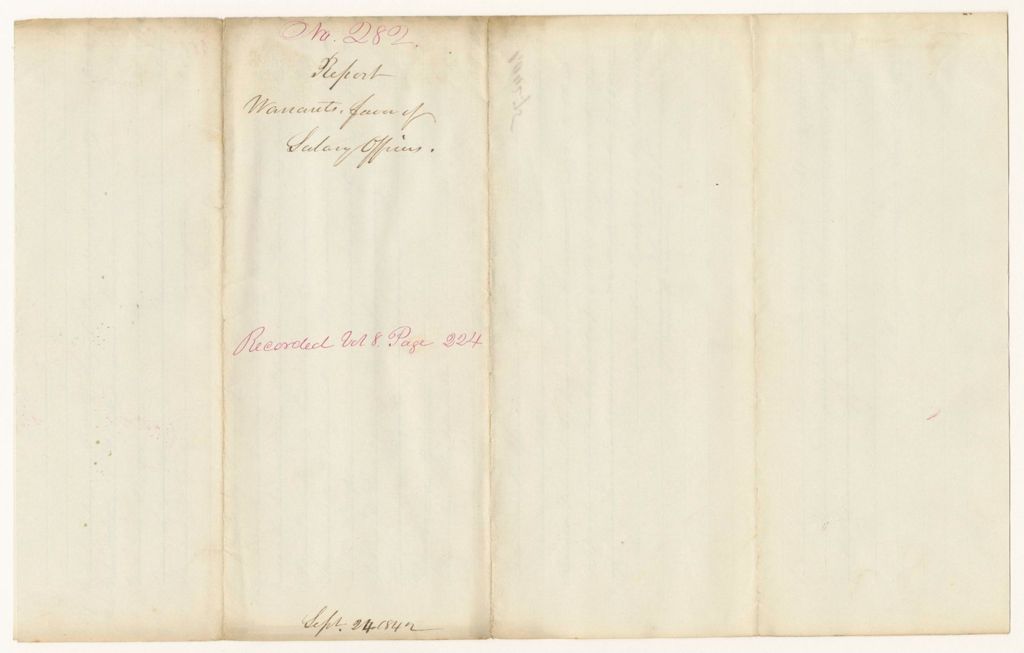 No. 282.
Report
Warrants. favor of
Salary Officers.
Recorded Vol 8. Page 224
Sept. 24 1842